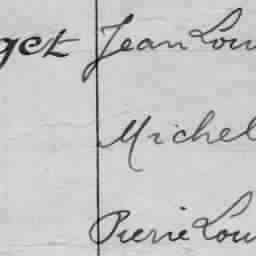 get Jean Lou
Michel
Pierre Lou